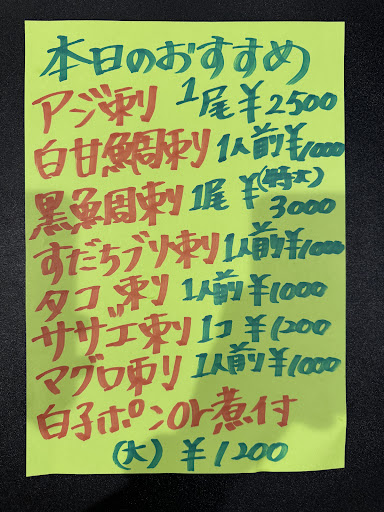 本日のおすすめ
アジ刺 1尾 ¥2500
白甘鯛刺 1人前 ¥1000
黒魚周刺 1尾 ¥(特大)3000
すだちブリ刺 1人前 ¥1000
タコ刺 1人前 ¥1000
サザエ刺 1コ ¥1200
マグロ刺 1人前 ¥1000
白子ポン or 煮付
(大) ¥1200